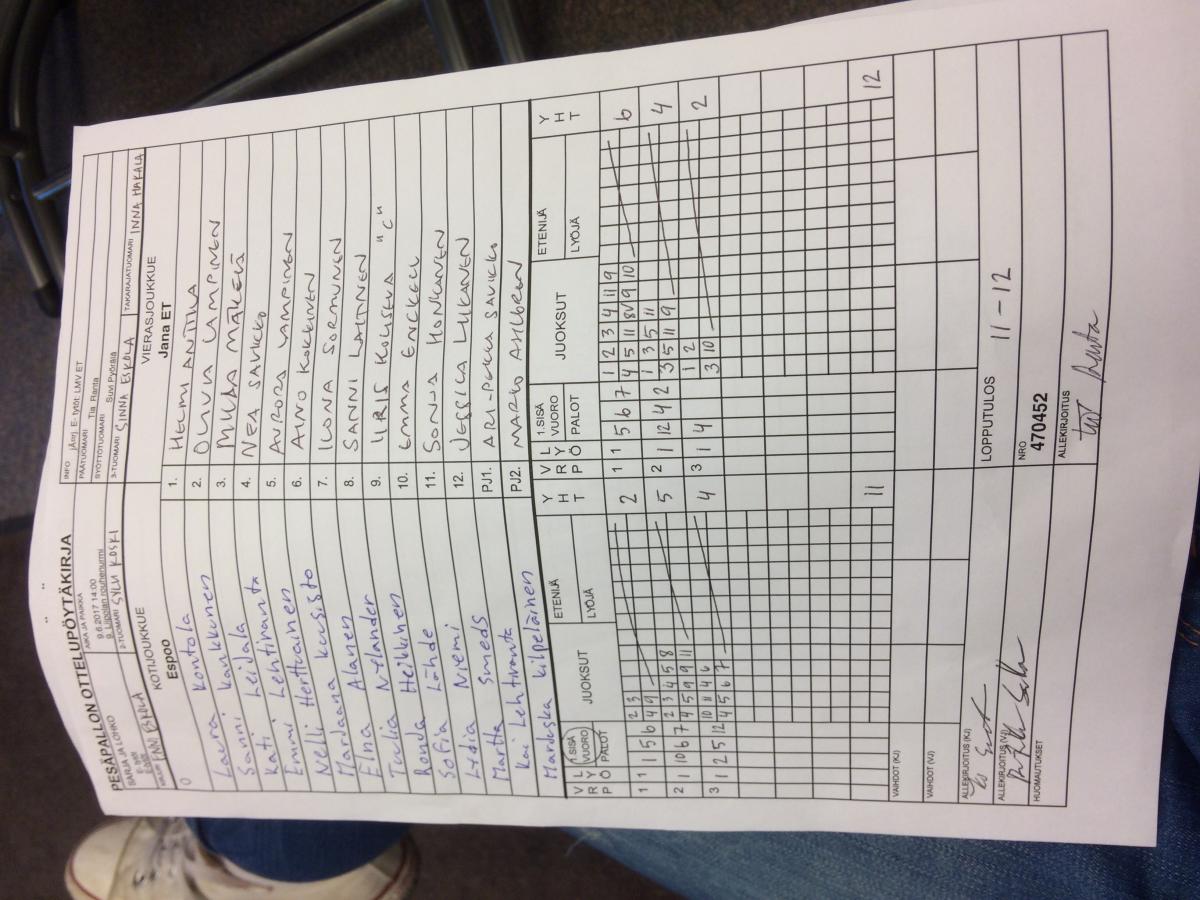 PESÄPALLON OTTELUPÖYTÄKIRJA
SARJA JA LOHKO
AIKA JA PAIKKA
9.6.2017 14:00
INFO
E- tytöt: LMV ET
PÄÄTUOMARI Tiia Ranta
SYÖTTÖTUOMARI Suvi Pyörälä
2-TUOMARI SYLVI KOSKI
3-TUOMARI SINNA ESKOLA
TAKARAJATUOMARI INNA MAKALA
KOTIJOUKKUE
Espoo
VIERASJOUKKUE
Jana ET
0 Kontola
Laura Kankkunen
Sanni Leidala
Kati Lehtiranta
Emmi Herttuainen
Nelli Kuusisto
Marjaana Alanen
Elna Nylander
Tuulia Heikkinen
Ronda Lähde
Sofia Niemi
Lydia Smeds
Matta
Kai Lehtiranta
Maruska Kilpeläinen
1. HELMI ANTTILA
2. OLIVIA LAMPINEN
3. MILLA MÄKELÄ
4. NEA SAVIKKO
5. AURORA LAMPINEN
6. AINO KOKKINEN
7. ILONA SORMUNEN
8. SANNI LAHTINEN
9. IIRIS KOLSELA "C"
10. EMMA ENCKELL
11. SONJA HONKANEN
12. JESSICA LIUKANEN
PJ1. ARI-PEKKA SAVIKKO
PJ2. MARKO AHLGREN
V R P
L Y Ö
1.SISÄ VUORO
PALOT
JUOKSUT
ETENIJÄ
LYÖJÄ
Y H T
V R P
L Y Ö
1.SISÄ VUORO
PALOT
JUOKSUT
ETENIJÄ
LYÖJÄ
Y H T
1 1 1 5 6
2 3
4 9
2
1 1 5 6 7
1 2 3 4 11 9
4 5 11 8V 9 10
6
2 1 10 6 7
2 3 4 5 8
4 5 9 9 11
5
2 1 12 4 2
1 3 5 11
3 5 11 9
4
3 1 2 5 12
10 11 4 6
4 5 6 7
4
3 1 4
1 2
3 10
2
11
12
VAIHDOT (KJ)
VAIHDOT (VJ)
ALLEKIRJOITUS (KJ)
ALLEKIRJOITUS (VJ)
HUOMAUTUKSET
LOPPUTULOS
11 - 12
NRO
470452
ALLEKIRJOITUS